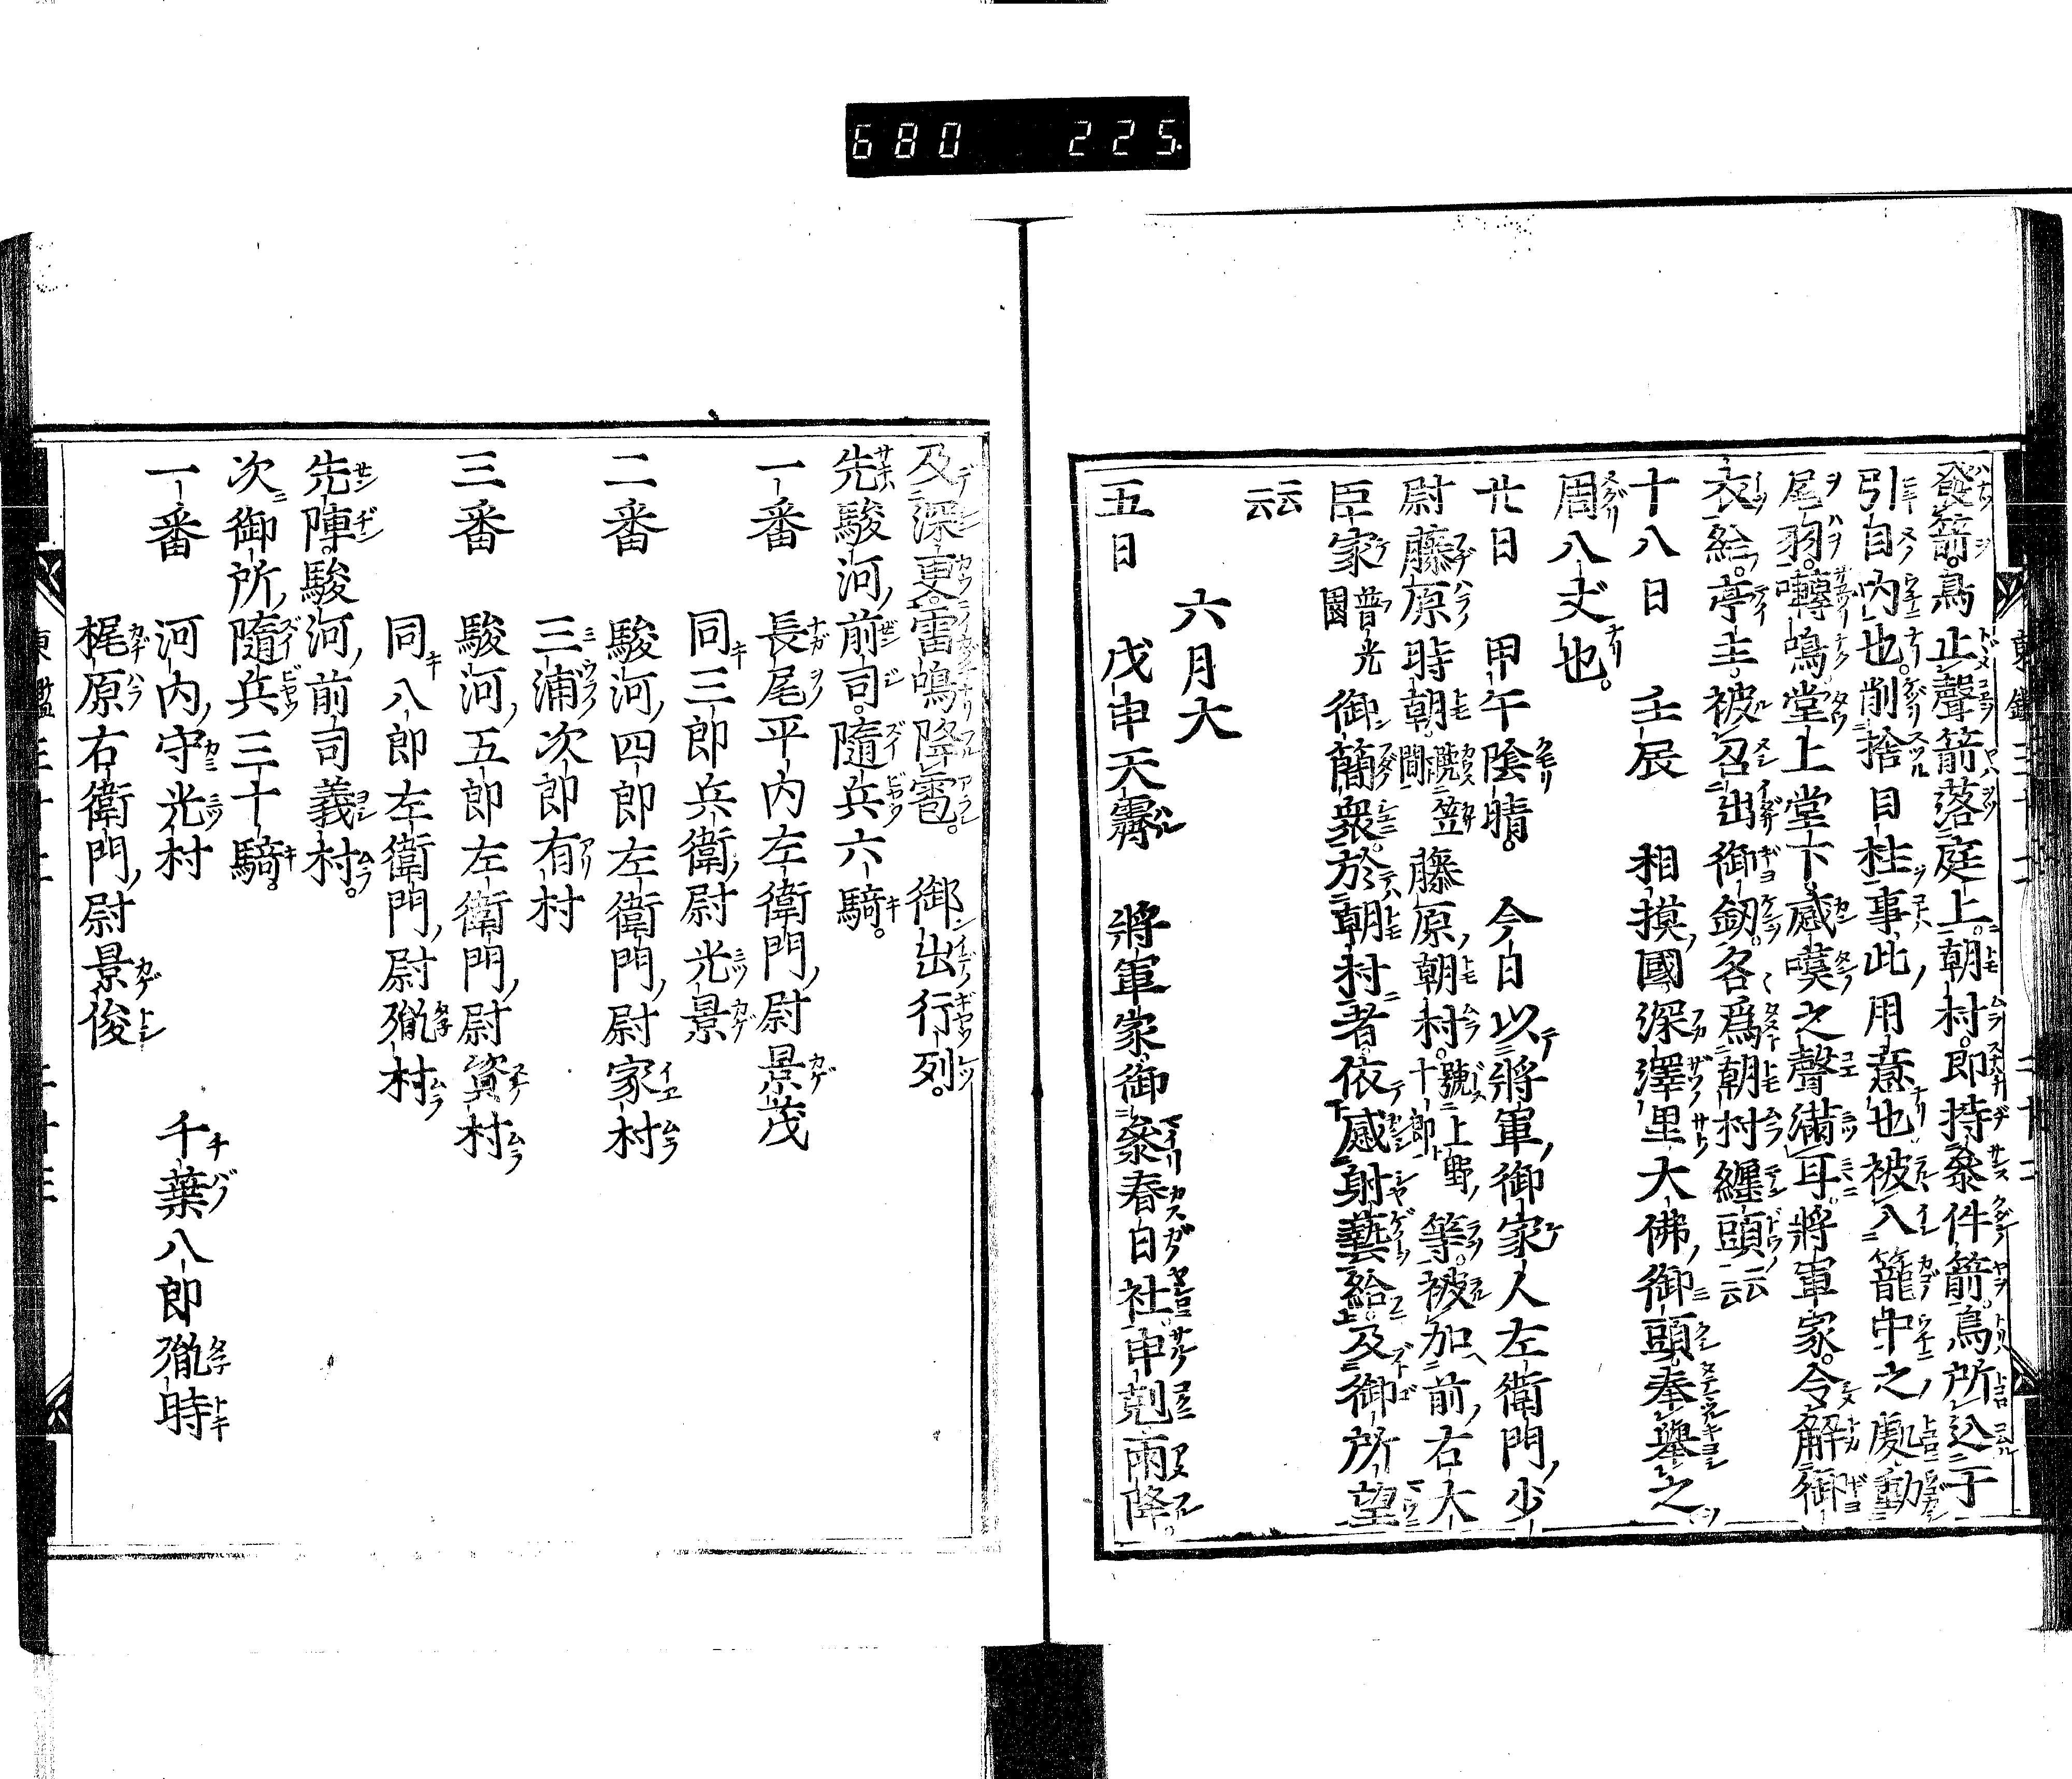 680 225
發箭。鳥止聲箭落庭上。朝村。即持參件箭。鳥所込于
引目内也。削捨目柱事、此用意也被入籠中之處動
尾羽。囀鳴堂上堂下感嘆之聲滿耳。將軍家。令解御
衣給。亭主。被召出御釼。各爲朝村纏頭云云
十八日 壬辰 相摸國深澤里大佛御頭奉擧之
周八丈也。
廿日 甲午陰晴。今日以將軍御家人左衛門少
尉藤原時朝。號笠間 藤原朝村。號上野十郎 等。被加前右大
臣家 普光園 御簡衆。於朝村者。依感射藝給。及御所望
云云
六月大
五日 戊申天霽 將軍家御參春日社申剋雨降。
及深更。雷鳴降雹。 御出行列。
先駿河前司。隨兵六騎。
一番 長尾平内左衛門尉景茂
同三郎兵衛尉光景
二番 駿河四郎左衛門尉家村
三浦次郎有村
三番 駿河五郎左衛門尉資村
同八郎左衛門尉胤村
先陣。駿河前司義村。
次御所隨兵三十騎。
一番 河内守光村 千葉八郎胤時
梶原右衛門尉景俊